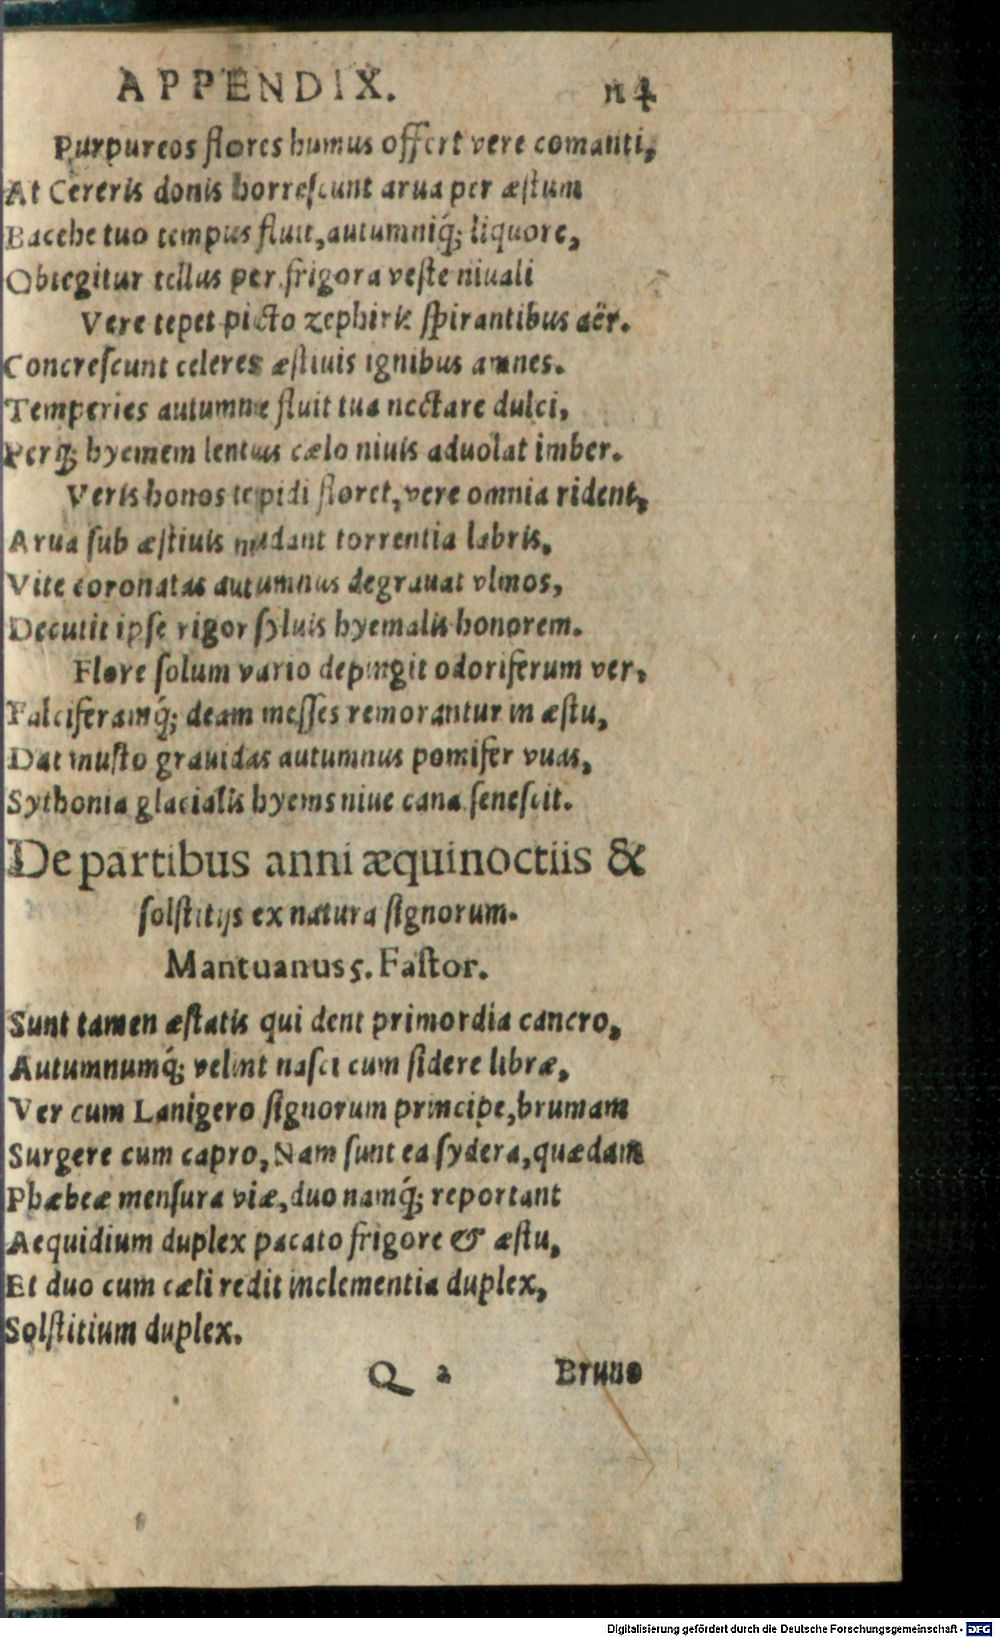 APPENDIX. 114
Purpureos flores humus offert vere comanti,
At Cereris donis horreſcunt arua per æſtum
Bacche tuo tempus fluit, autumniq́; liquore,
Obtegitur tellus per frigora veſte niuali
Vere tepet picto zephiris ſpirantibus aër.
Concreſcunt celeres æſtiuis ignibus amnes.
Temperies autumne fluit tua nectare dulci,
Perq́; hyemem lentus cælo niuis aduolat imber.
Veris honos tepidi floret, vere omnia rident,
Arua ſub æſtiuis nudant torrentia labris,
Vite coronatas autumnus degrauat vlmos,
Decutit ipſe rigor ſyluis hyemalis honorem.
Flore ſolum vario depingit odoriferum ver,
Falciferamq́; deam meſſes remorantur in æſtu,
Dat muſto grauidas autumnus pomifer vuas,
Sythonia glacialis hyems niue cana ſeneſcit.
De partibus anni æquinoctiis &
ſolſtitijs ex natura ſignorum.
Mantuanus 5. Faſtor.
Sunt tamen æſtatis qui dent primordia cancro,
Autumnumq́; velint naſci cum ſidere libræ,
Ver cum Lanigero ſignorum principe, brumam
Surgere cum capro, Nam ſunt ea ſydera, quædam
Phæbeæ menſura viæ, duo namq́; reportant
Aequidium duplex pacato frigore & æſtu,
Et duo cum cæli redit inclementia duplex,
Solſtitium duplex.
Q 2 Bruno
Digitalisierung gefördert durch die Deutsche Forschungsgemeinschaft - DFG